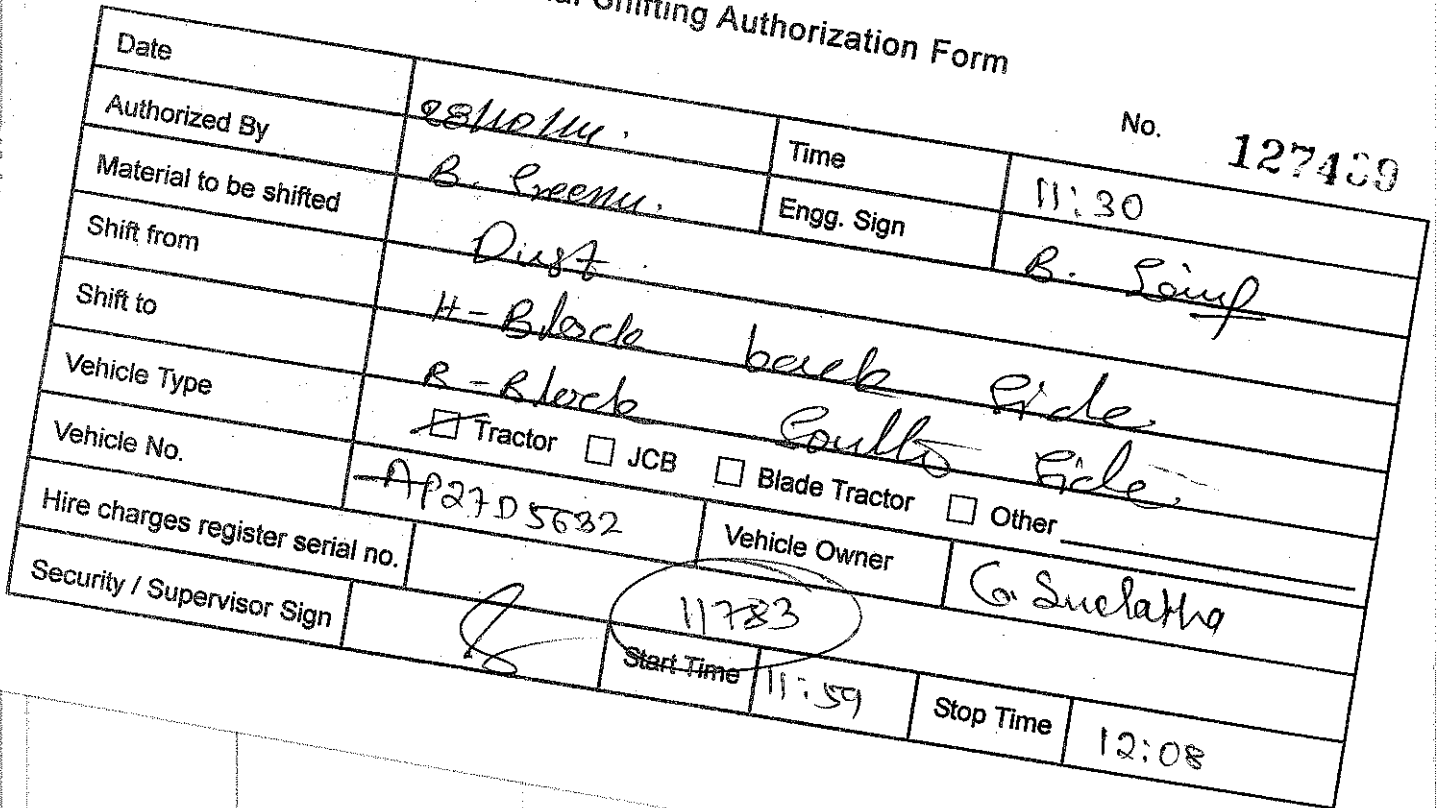 Shifting Authorization Form
No. 127489
Date 28/10/14. Time 11:30
Authorized By B. Sreenu. Engg. Sign B.
Material to be shifted Dust.
Shift from H-Block back side.
Shift to R-Block South side.
Vehicle Type Tractor JCB Blade Tractor Other
Vehicle No. AP27D5632 Vehicle Owner G. Suclatha
Hire charges register serial no. 11783
Security / Supervisor Sign Start Time 11:59 Stop Time 12:08